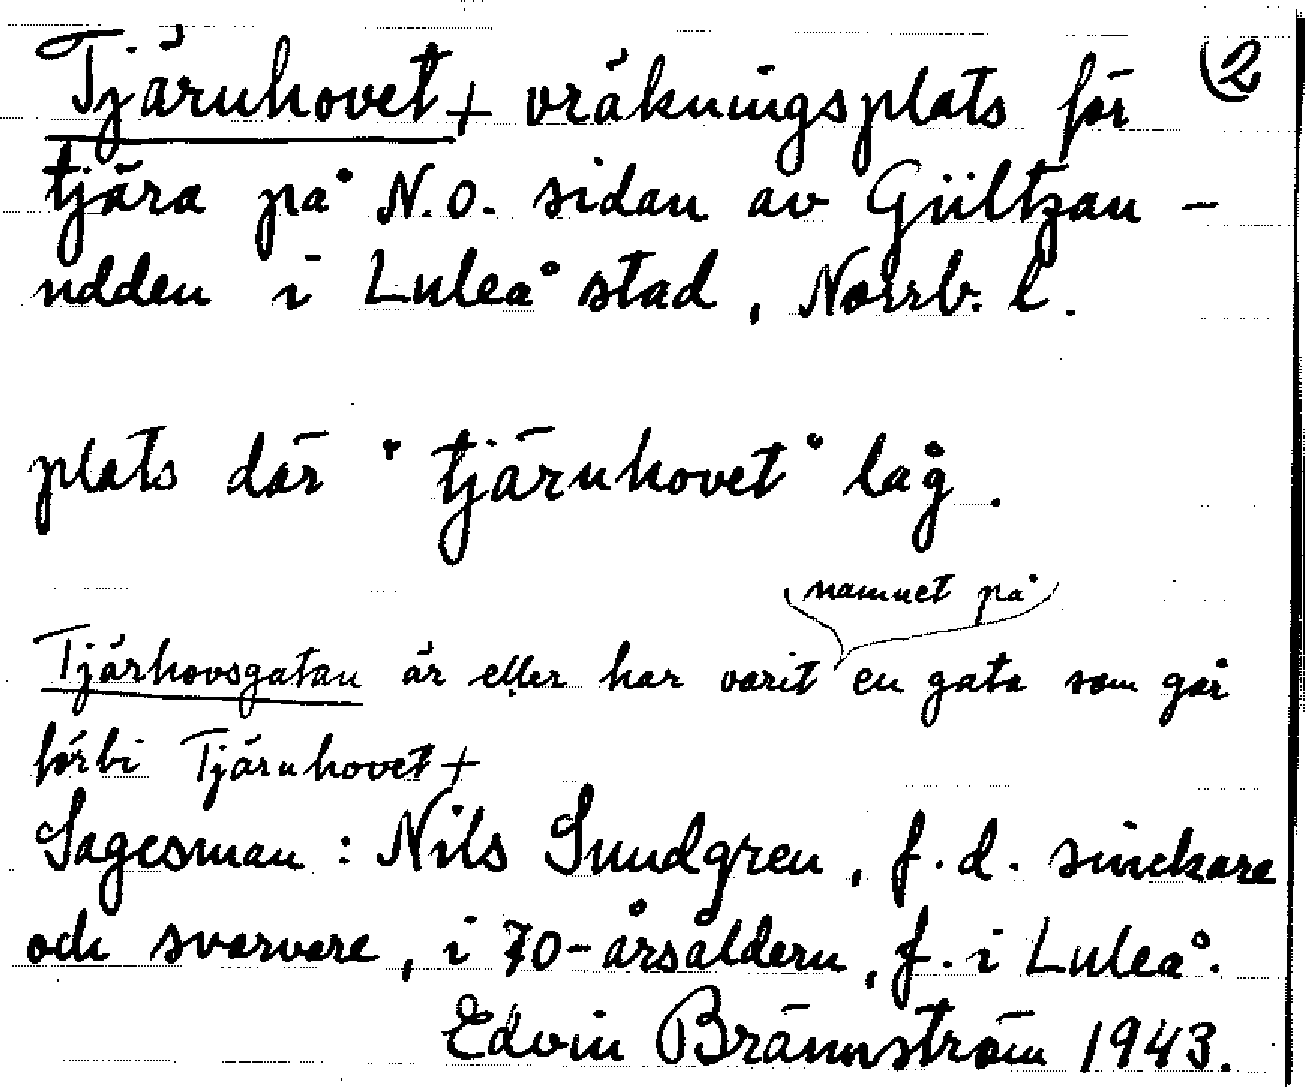 Tjärnhovet + vräkningsplats för 2
tjära på N.O. sidan av Gültzau-
udden i Luleå stad, Norrb. l.
plats där "tjärnhovet" låg.
namnet på
Tjärhovsgatan är eller har varit en gata som går
förbi Tjärnhovet +
Sagesman: Nils Sundgren, f.d. snickare
och svarvare, i 70-årsåldern, f. i Luleå.
Edvin Brännström 1943.